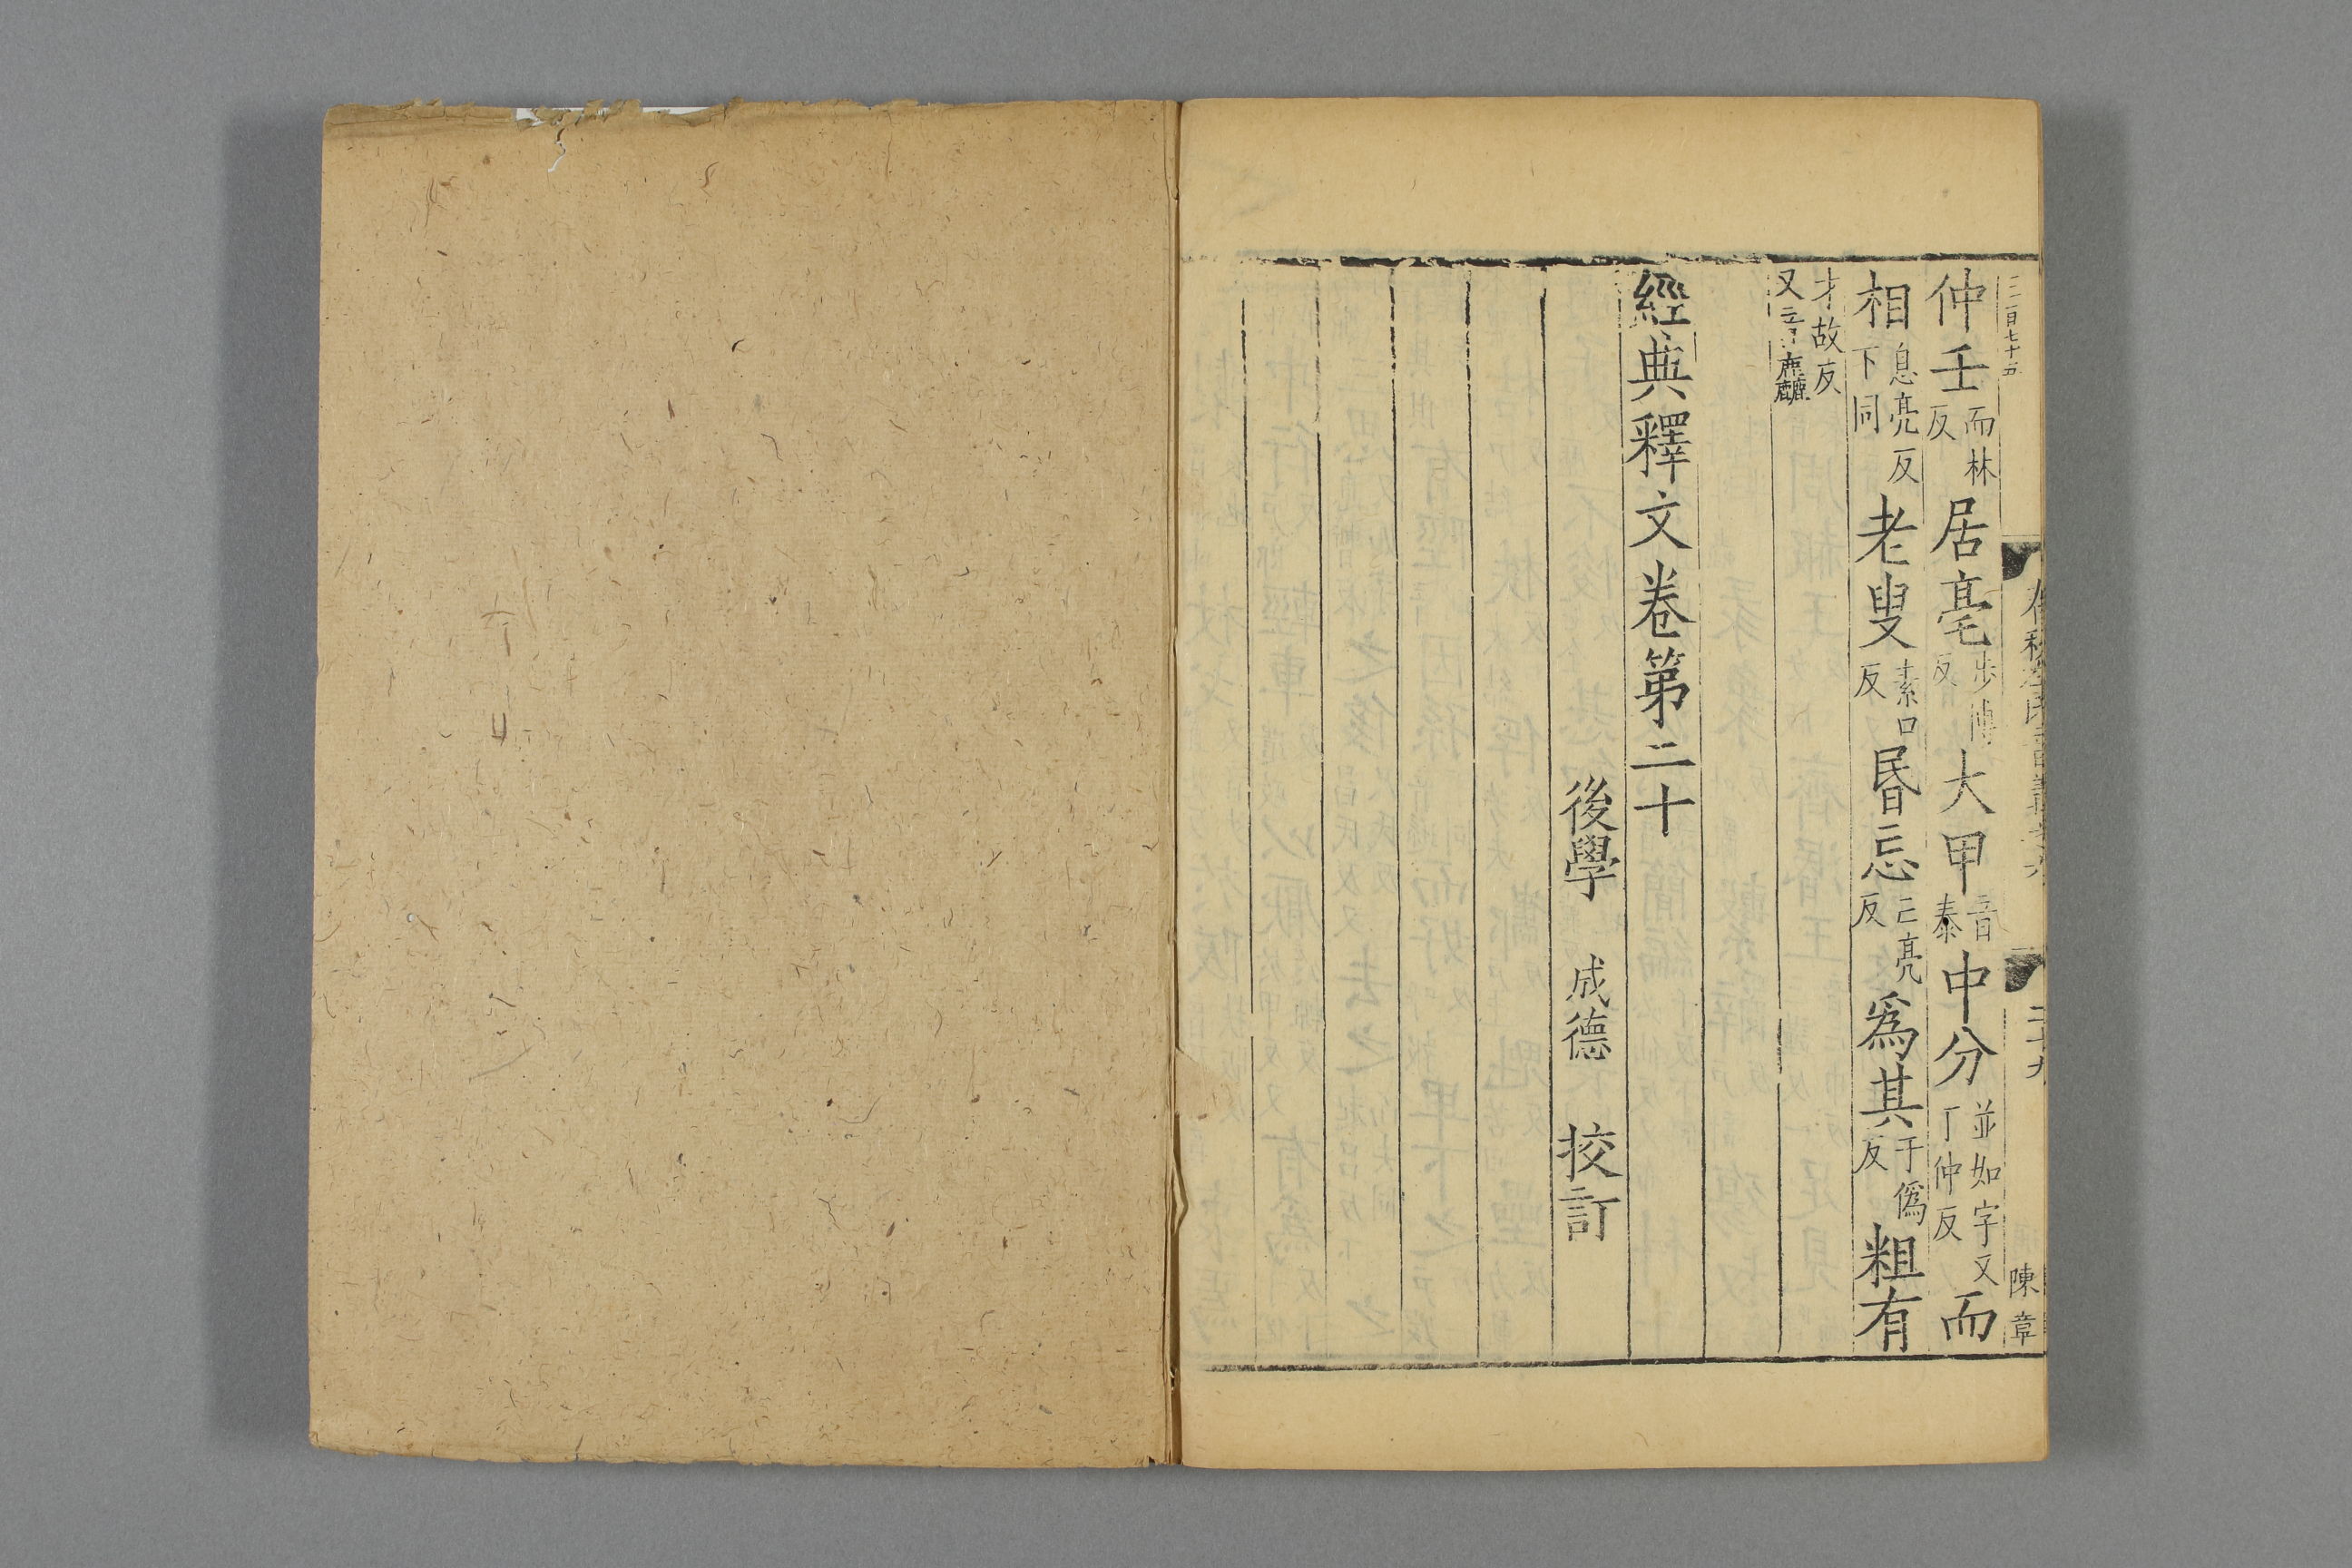 二百七十五
陳章
仲壬而林反居亳步博反大甲音泰中分並如字又丁仲反而
相息亮反下同老叟素口反昬忘亡亮反爲其于僞反粗有
才故反又音麤
經典釋文卷第二十
後學 成德 挍訂